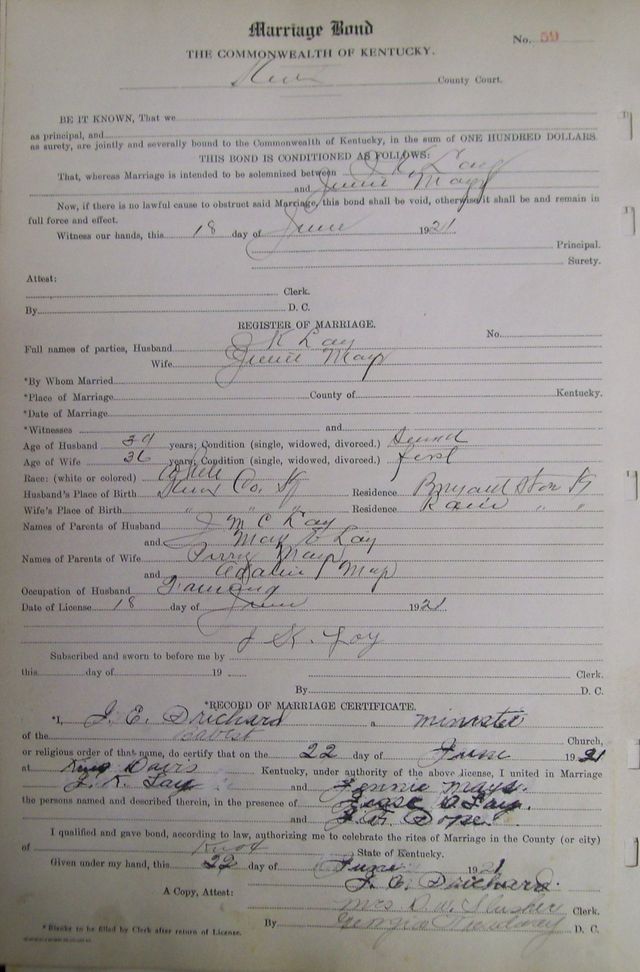 Marriage Bond
No. 59
THE COMMONWEALTH OF KENTUCKY.
County Court.
BE IT KNOWN, That we
as principal, and
as surety, are jointly and severally bound to the Commonwealth of Kentucky, in the sum of ONE HUNDRED DOLLARS.
THIS BOND IS CONDITIONED AS FOLLOWS:
That, whereas Marriage is intended to be solemnized between J K Lay
and Jennie Mays
Now, if there is no lawful cause to obstruct said Marriage, this bond shall be void, otherwise it shall be and remain in
full force and effect.
Witness our hands, this 18 day of June 1921
Principal.
Surety.
Attest:
Clerk.
By D. C.
REGISTER OF MARRIAGE.
No.
Full names of parties, Husband J K Lay
Wife Jennie Mays
*By Whom Married
*Place of Marriage County of Kentucky.
*Date of Marriage
*Witnesses and
Age of Husband 39 years; Condition (single, widowed, divorced.) Second
Age of Wife 36 years; Condition (single, widowed, divorced.) first
Race: (white or colored) White
Husband's Place of Birth Knox Co. Ky Residence
Wife's Place of Birth " " " Residence " "
Names of Parents of Husband J M C Lay
and Mary E Lay
Names of Parents of Wife Perry Mays
and Mays
Occupation of Husband Farming
Date of License 18 day of June 1921
J K. Lay
Subscribed and sworn to before me by
this day of 19 Clerk.
By D. C.
*RECORD OF MARRIAGE CERTIFICATE.
*I, J. E. Prichard a minister
of the Babtist Church,
or religious order of that name, do certify that on the 22 day of June 1921
at King Davis Kentucky, under authority of the above license, I united in Marriage
J. K. Lay and Jennie Mays.
the persons named and described therein, in the presence of Lay.
and Pope.
I qualified and gave bond, according to law, authorizing me to celebrate the rites of Marriage in the County (or city)
of Knox State of Kentucky.
Given under my hand, this 22 day of June 1921
J. E. Prichard.
A Copy, Attest:
Mrs. D. W. Slusher Clerk.
By D. C.
* Blanks to be filled by Clerk after return of License.